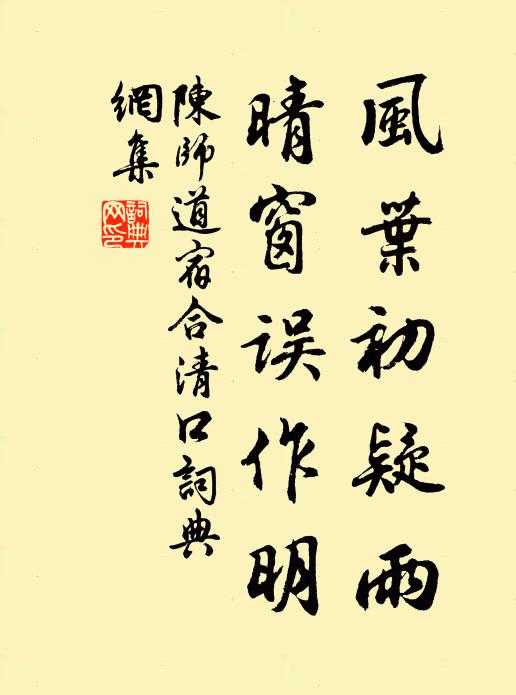 風葉初疑雨
晴窗误作明
陳師道宿合清口詞典
網集
詞典
网印